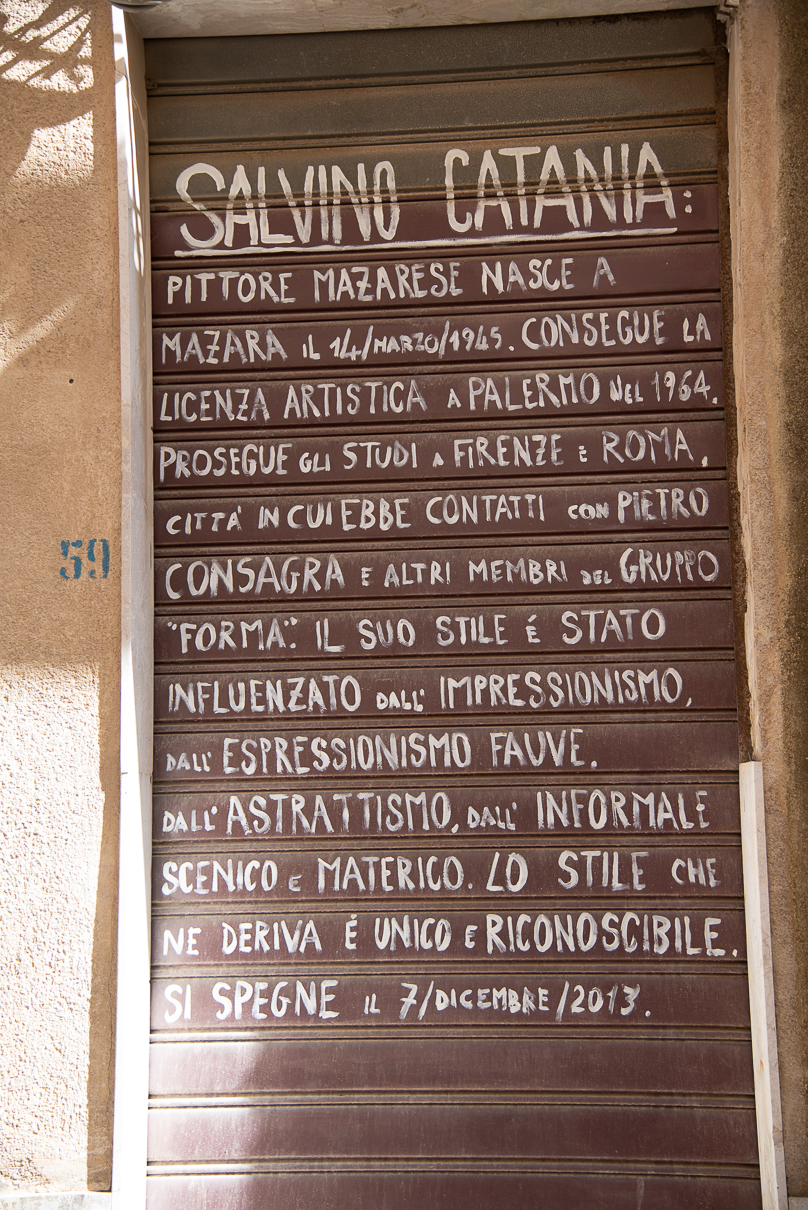 SALVINO CATANIA:
PITTORE MAZARESE NASCE A
MAZARA IL 14/MARZO/1945. CONSEGUE LA
LICENZA ARTISTICA A PALERMO NEL 1964.
PROSEGUE GLI STUDI A FIRENZE E ROMA,
CITTA' IN CUI EBBE CONTATTI CON PIETRO
59
CONSAGRA E ALTRI MEMBRI DEL GRUPPO
"FORMA". IL SUO STILE É STATO
INFLUENZATO DALL' IMPRESSIONISMO,
DALL' ESPRESSIONISMO FAUVE.
DALL' ASTRATTISMO, DALL' INFORMALE
SCENICO E MATERICO. LO STILE CHE
NE DERIVA É UNICO E RICONOSCIBILE.
SI SPEGNE IL 7/DICEMBRE/2013.